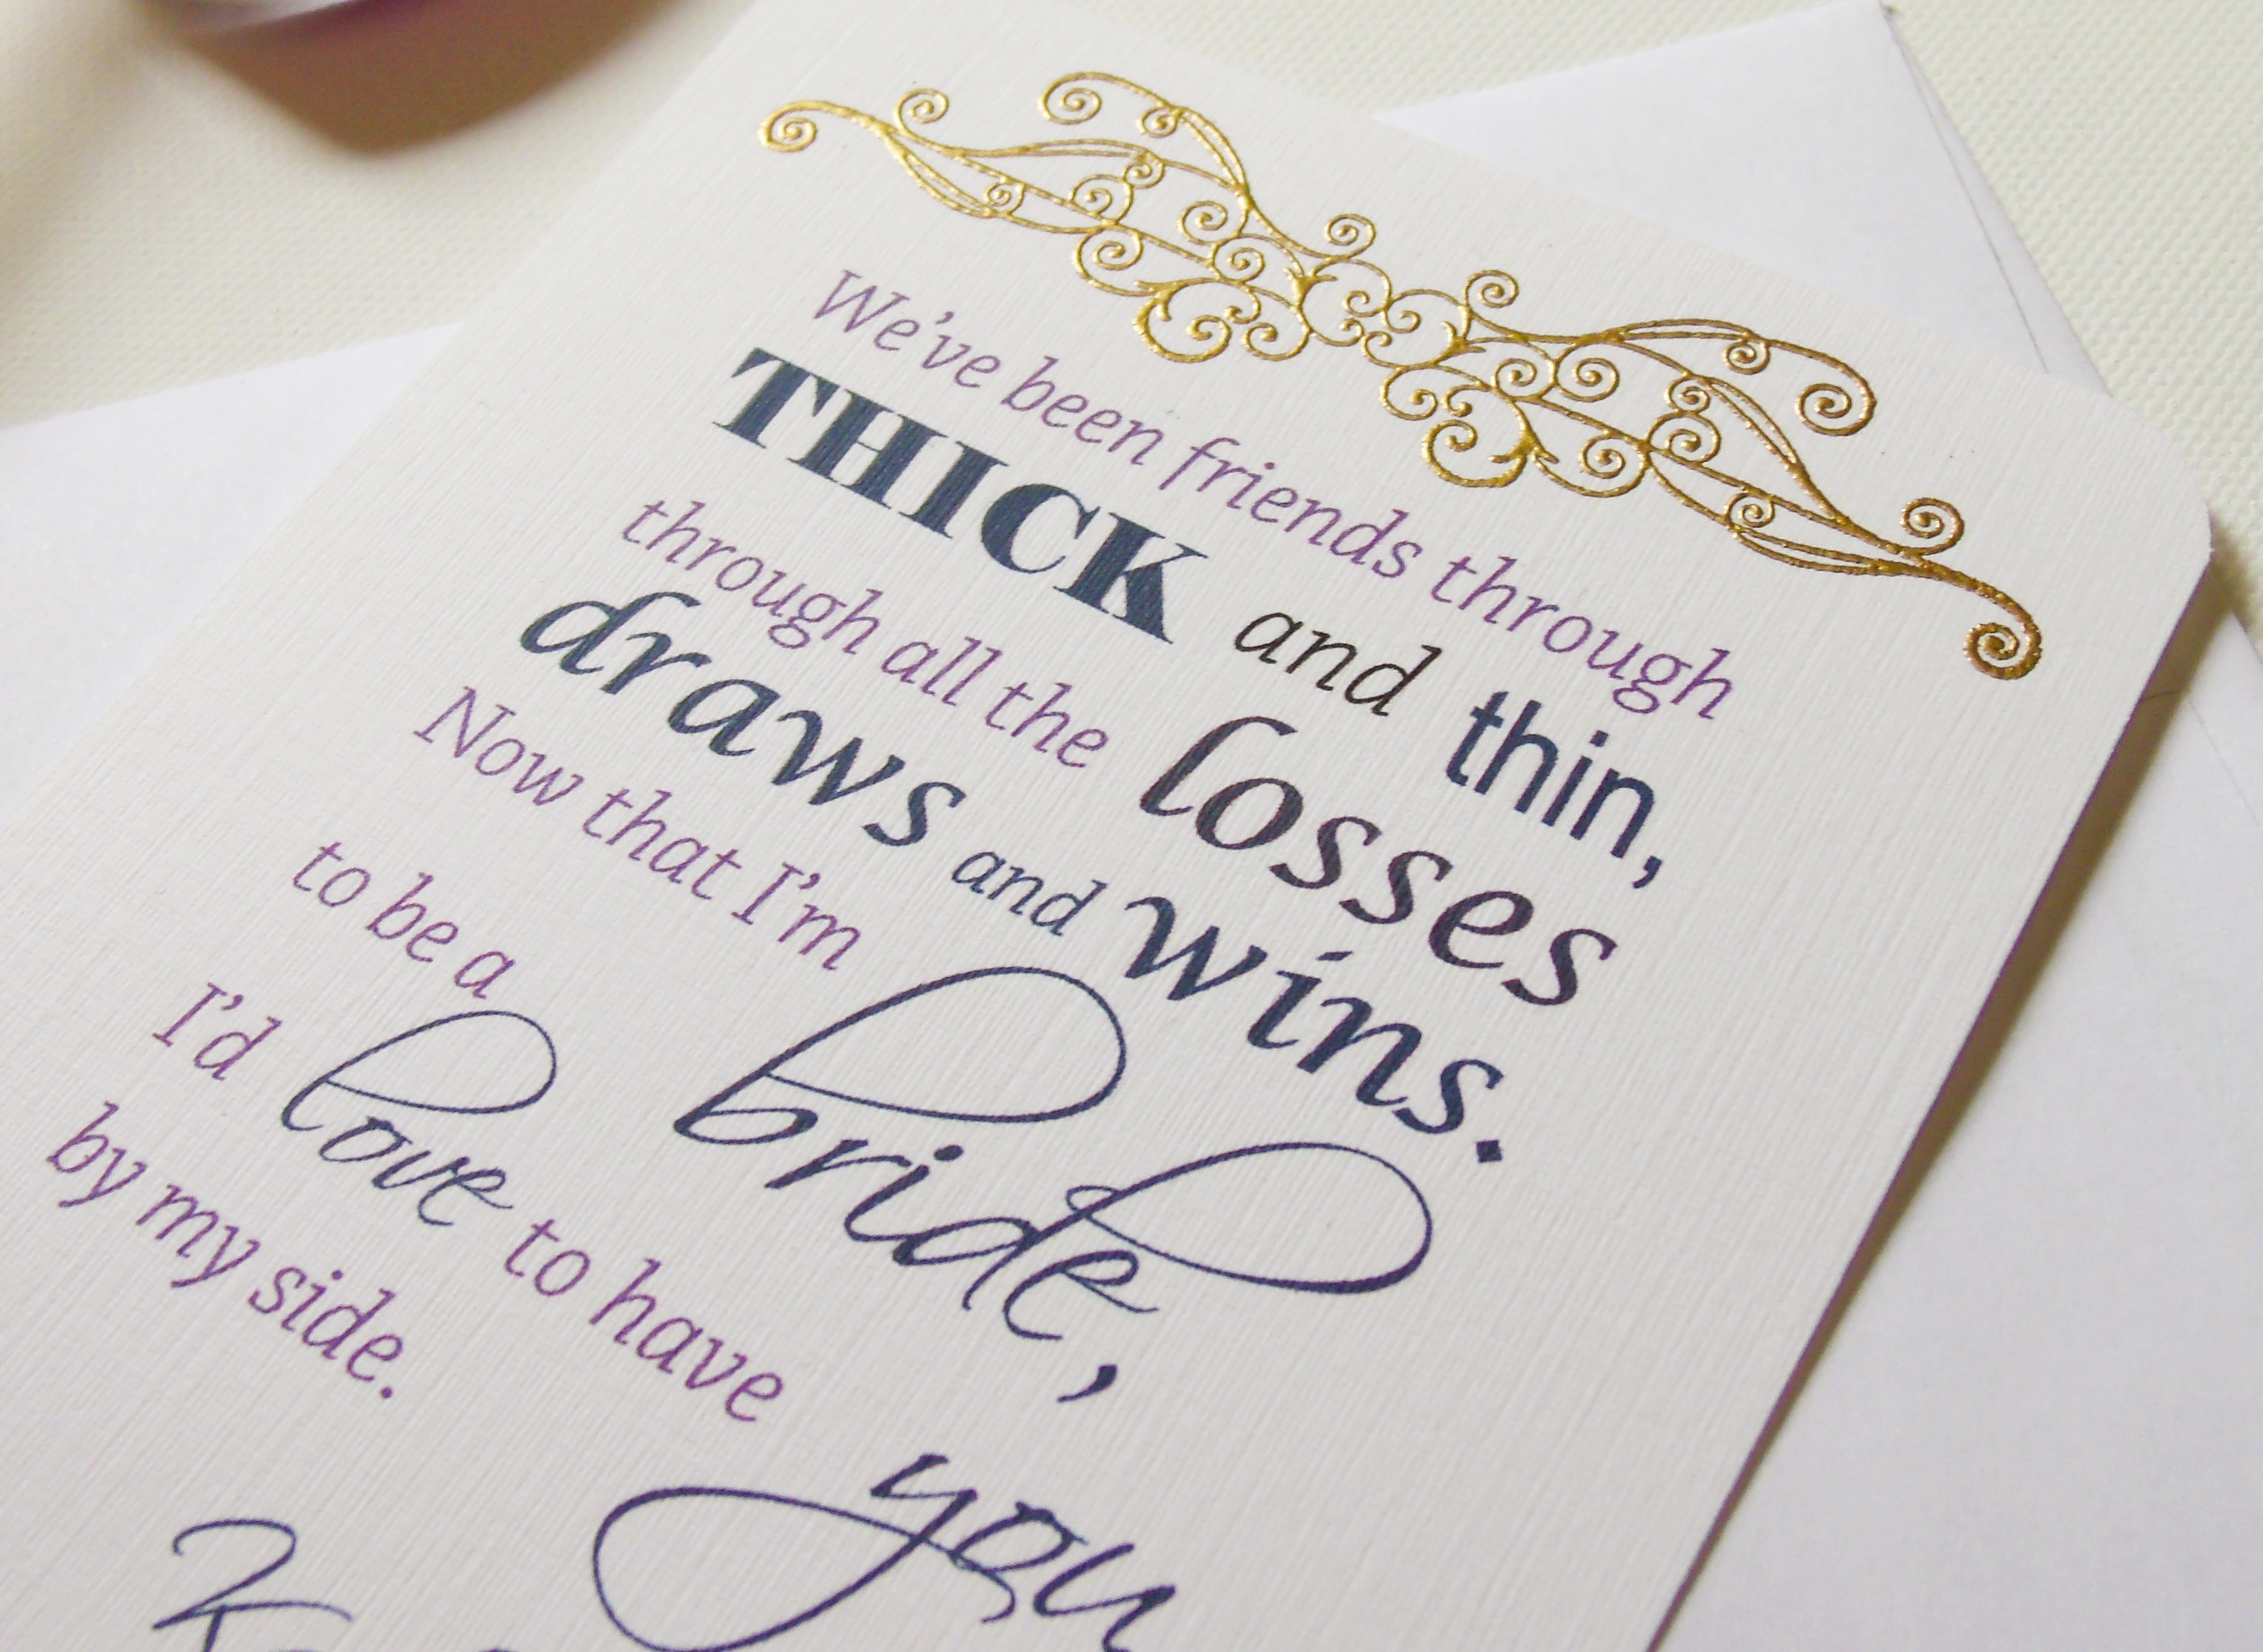 We've been friends through
THICK and thin,
through all the losses
draws and wins.
Now that I'm
to be a bride,
I'd love to have you
by my side.